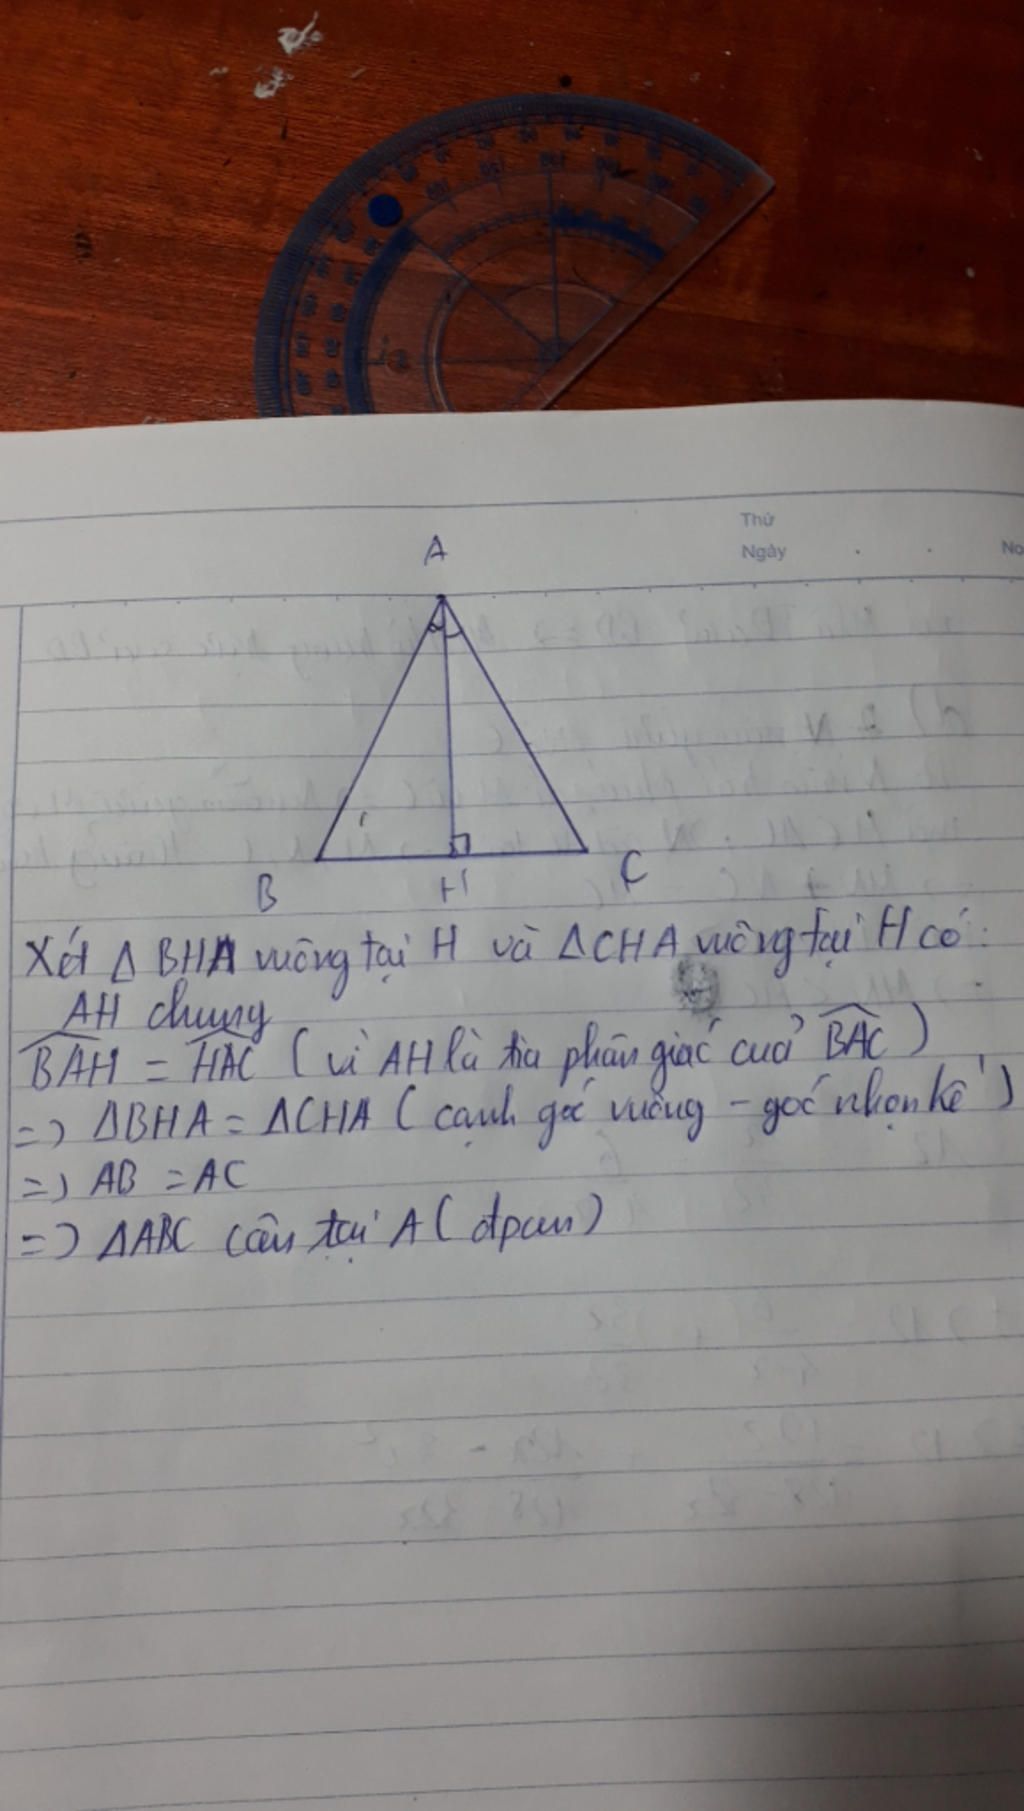 Thứ
Ngày
No
A
B
H
C
Xét Δ BHA vuông tại H và ΔCHA vuông tại H có:
AH chung
BAH = HAC (vì AH là tia phân giác của BAC)
=> ΔBHA = ΔCHA (cạnh góc vuông - góc nhọn kề)
=> AB = AC
=> ΔABC cân tại A (đpcm)